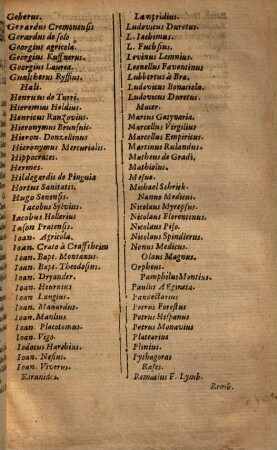 Geberus.
Gerardus Cremonensis
Gerardus de solo
Georgius agricola.
Georgius Kuffnerus.
Georgius Laurea.
Gualtherus Ryffius.
Hali.
Henricus de Turri.
Hieremias Heldius.
Henricus Ranzovius.
Hieronymus Brunsuic.
Hieron. Donzellinus
Hieronymus Mercurialis.
Hippocrates.
Hermes.
Hildegardis de Pinguia
Hortus Sanitatis.
Hugo Senensis.
Iacobus Sylvius.
Iacobus Hollerius
Iason Pratensis.
Ioan. Agricola.
Ioan. Crato à Crafftheim
Ioan. Bapt. Montanus.
Ioan. Bapt. Theodosius.
Ioan. Dryander.
Ioan. Heurnius
Ioan. Langius.
Ioan. Manardus.
Ioan. Manlius
Ioan. Placotomus.
Ioan. Vigo.
Iodocus Harchius.
Ioan. Nesius.
Ioan. Viverus.
Kiranides.
Lampridius.
Ludovicus Duretus.
L. Iachimus.
L. Fuchsius.
Levinus Lemnius.
Leonellus Faventinus
Lubbertus à Bra.
Ludovicus Bonaciola.
Ludovicus Duretus
Macer.
Marcus Gatynaria.
Marcellus Vergilius
Marcellus Empiricus.
Martinus Rulandus.
Matheus de Gradi,
Mathiolus.
Mesue.
Michael Schrick.
Nanno Medicus.
Nicolaus Myrepsus.
Nicolaus Florentinus.
Nicolaus Piso.
Nicolaus Spindlerus.
Nonus Medicus.
Olaus Magnus.
Orpheus.
Pamphilus Montius.
Paulus AEgineta.
Pandectarius
Petrus Forestus
Petrus Hispanus
Petrus Monavius
Platearius
Plinius.
Pythagoras
Rases.
Remaclus F. Lymb.
Remb.